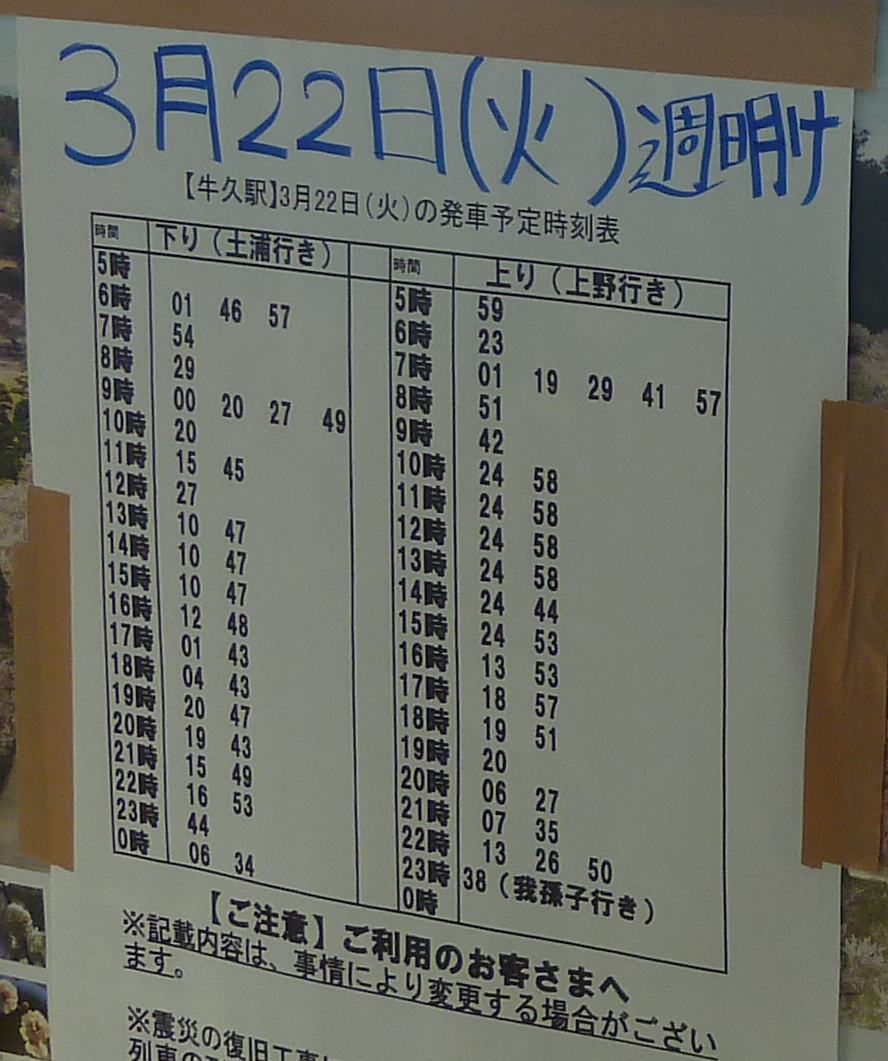 3月22日(火)週明け
【牛久駅】3月22日(火)の発車予定時刻表
時間 下り(土浦行き) 時間 上り(上野行き)
5時 5時 59
6時 01 46 57 6時 23
7時 54 7時 01 19 29 41 57
8時 29 8時 51
9時 00 20 27 49 9時 42
10時 20 10時 24 58
11時 15 45 11時 24 58
12時 27 12時 24 58
13時 10 47 13時 24 58
14時 10 47 14時 24 44
15時 10 47 15時 24 53
16時 12 48 16時 13 53
17時 01 43 17時 18 57
18時 04 43 18時 19 51
19時 20 47 19時 20
20時 19 43 20時 06 27
21時 15 49 21時 07 35
22時 16 53 22時 13 26 50
23時 44 23時 38(我孫子行き)
0時 06 34 0時
【ご注意】ご利用のお客さまへ
※記載内容は、事情により変更する場合がござい
ます。
※震災の復旧工事
列車の